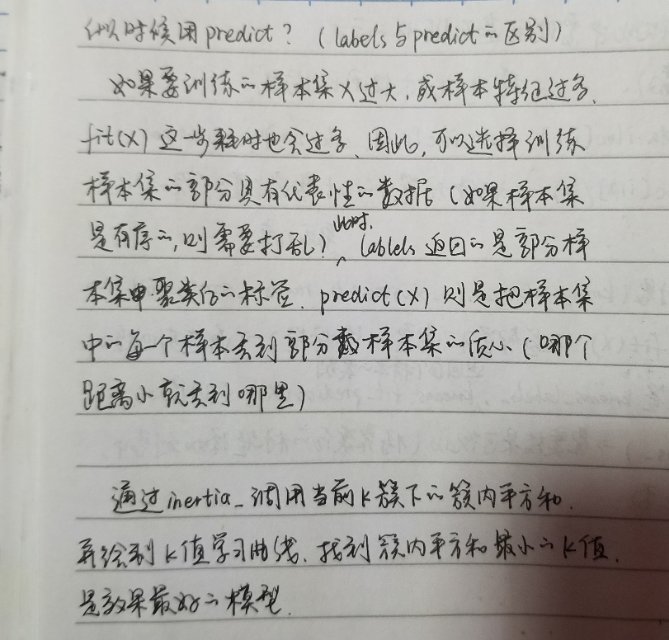 什么时候用predict?(labels与predict的区别)
如果要训练的样本集X过大,或样本特征过多,
fit(X)这一步耗时也会过多、因此,可以选择训练
样本集的部分具有代表性的数据(如果样本集
是有序的,则需要打乱)此时,lablels返回的是部分样
本集中聚类后的标签.predict(X)则是把样本集
中的每一个样本类到部分数样本集的质心(哪个
距离小就类到哪里)
通过inertia_调用当前K簇下的簇内平方和,
并绘制K值学习曲线,找到簇内平方和最小的K值,
是效果最好的模型.